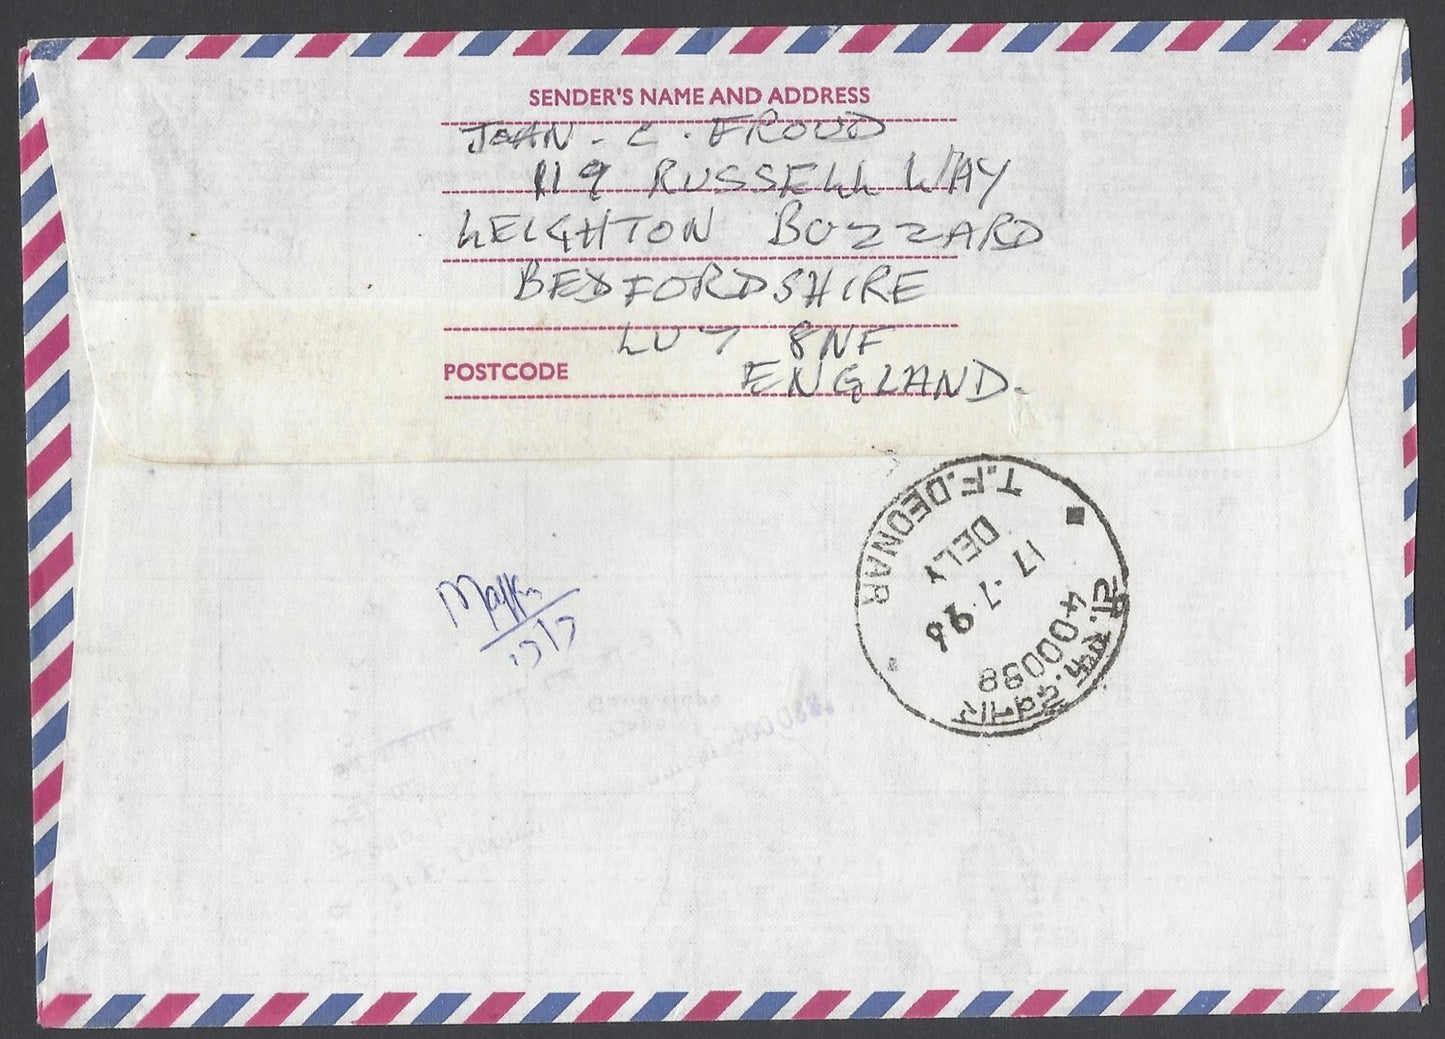 SENDER'S NAME AND ADDRESS
JOAN. C. FROUD
119 RUSSELL WAY
LEIGHTON BUZZARD
BEDFORDSHIRE
LU7 8NF
POSTCODE
ENGLAND.
T.F.DEONAR
DELY
17.7.96
400088
टी. एफ. देवनार
17/7